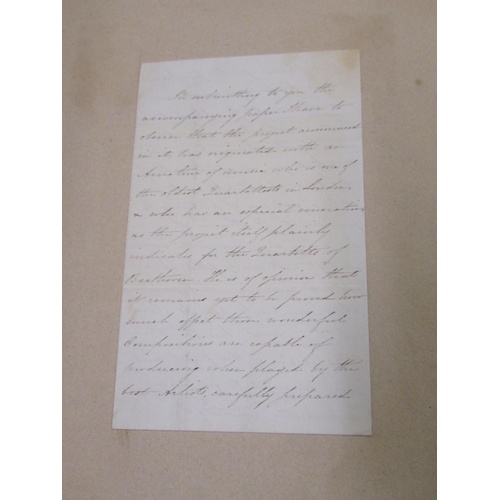 In submitting to you the
accompanying paper I have to
observe that the project announced
in it has originated with an
Amateur of music who is one of
the oldest Quartettists in London,
& who has an especial veneration
as the project itself plainly
indicates for the Quartetts of
Beethoven. He is of opinion that
it remains yet to be proved how
much effect those wonderful
Compositions are capable of
producing when played by the
best Artists, carefully prepared